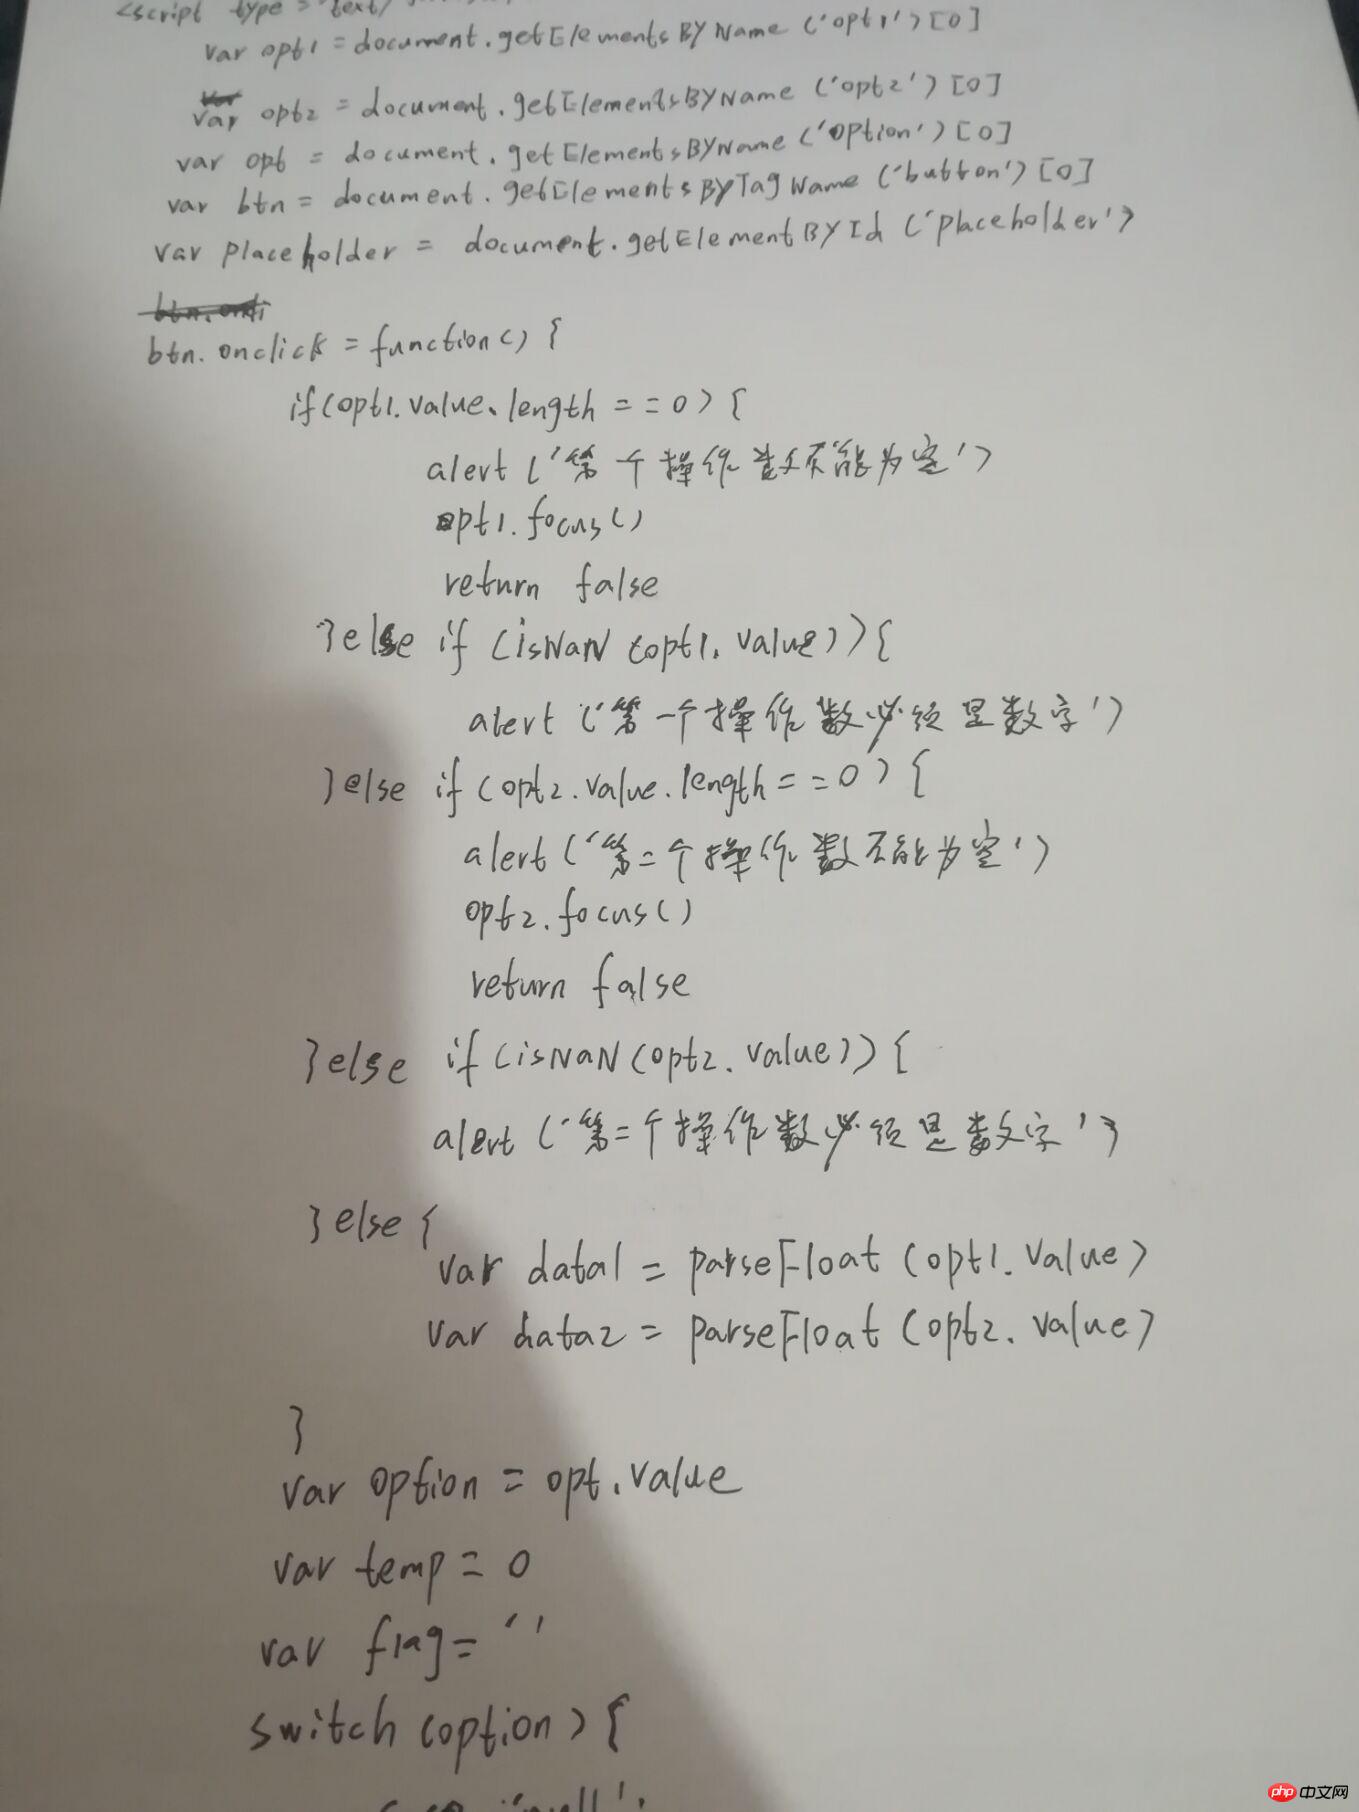 <script type = "text/
var opt1 = document.getElementsByName ('opt1') [0]
var opt2 = document.getElementsByName ('opt2') [0]
var opt = document.getElementsByName ('option') [0]
var btn = document.getElementsByTagName ('button') [0]
var placeholder = document.getElementById ('placeholder')
btn.onclick = function() {
if(opt1.value.length == 0) {
alert ('第个操作数不能为空')
opt1.focus()
return false
}else if (isNaN (opt1.value)) {
alert ('第一个操作数必须是数字')
}else if (opt2.value.length == 0) {
alert ('第二个操作数不能为空')
opt2.focus()
return false
}else if (isNaN (opt2.value)) {
alert ('第二个操作数必须是数字')
}else {
var data1 = parseFloat (opt1.value)
var data2 = parseFloat (opt2.value)
}
var option = opt.value
var temp = 0
var flag = ''
switch (option) {
php 中文网